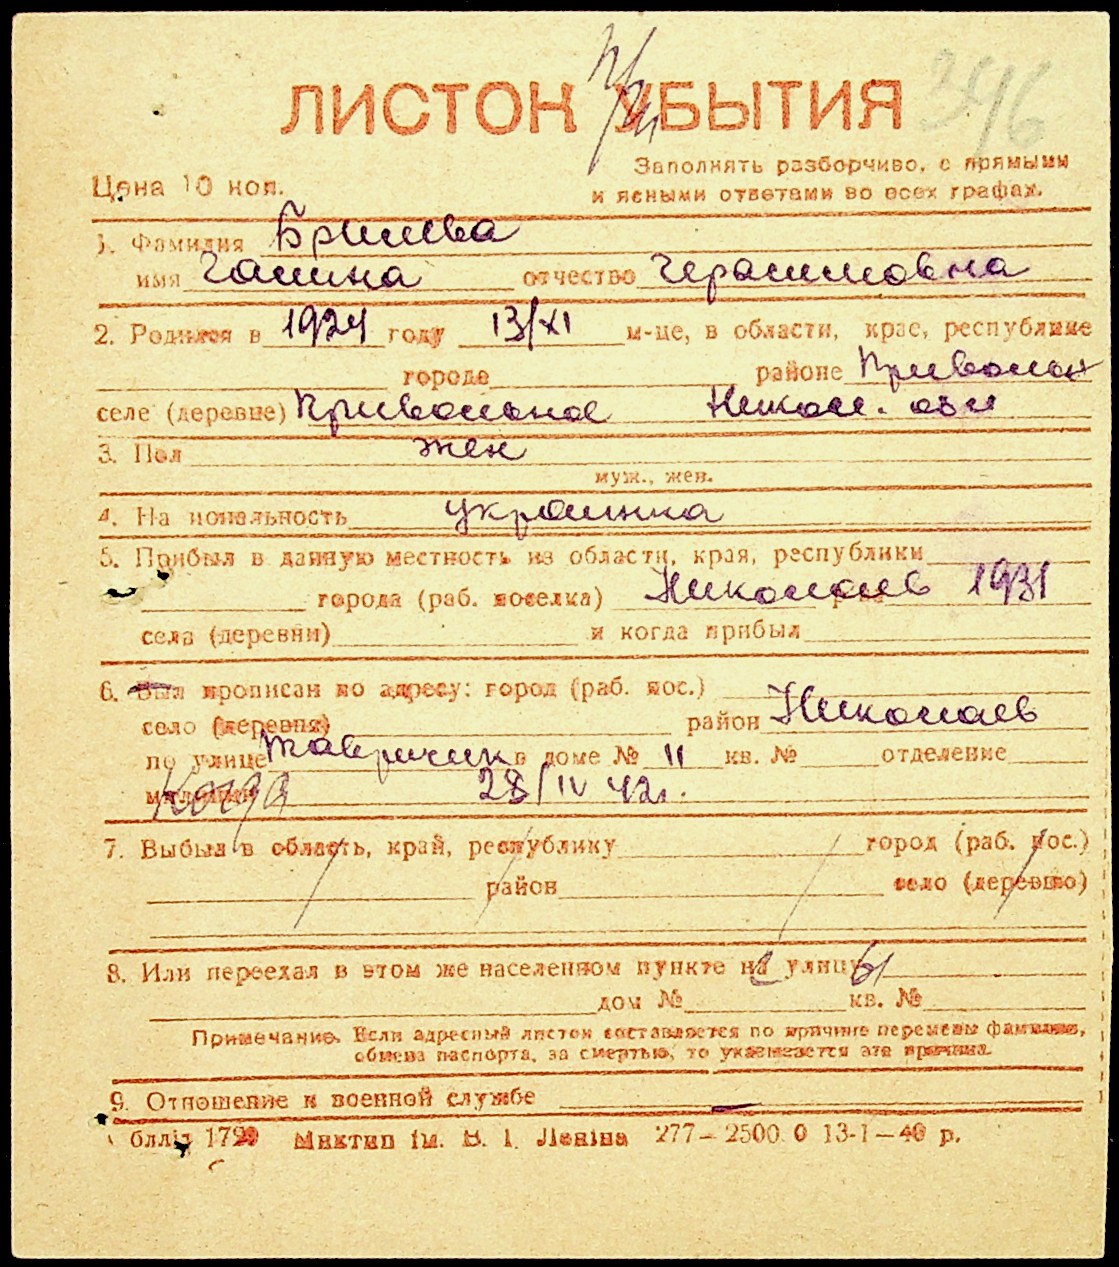 396
ЛИСТОК УБЫТИЯ
Заполнять разборчиво, с прямыми
Цена 10 коп.
и ясными ответами во всех графах.
1. Фамилия
имя Галина отчество Герасимовна
2. Родился в 1924 году 13/XI м-це, в области, крае, республике
городе районе Привольн
селе (деревне) Привольное Никол. обл
3. Пол жен
муж., жен.
4. На иональность украинка
5. Прибыл в данную местность из области, края, республики
города (раб. поселка) Николаев 1931
села (деревни) и когда прибыл
6. Был прописан по адресу: город (раб. пос.)
село (деревня) район Николаев
по улице Тавричик в доме № 11 кв. № отделение
милиции Когда 28/IV 42г.
7. Выбыл в область, край, республику город (раб. пос.)
район село (деревню)
8. Или переехал в этом же населенном пункте на улицу
дом № кв. №
Примечание. Если адресный листок составляется по причине перемены фамилии,
обмена паспорта, за смертью, то указывается эта причина.
9. Отношение к военной службе —
1729 Миктип ім. В. І. Леніна 277—2500 0 13-1—40 р.